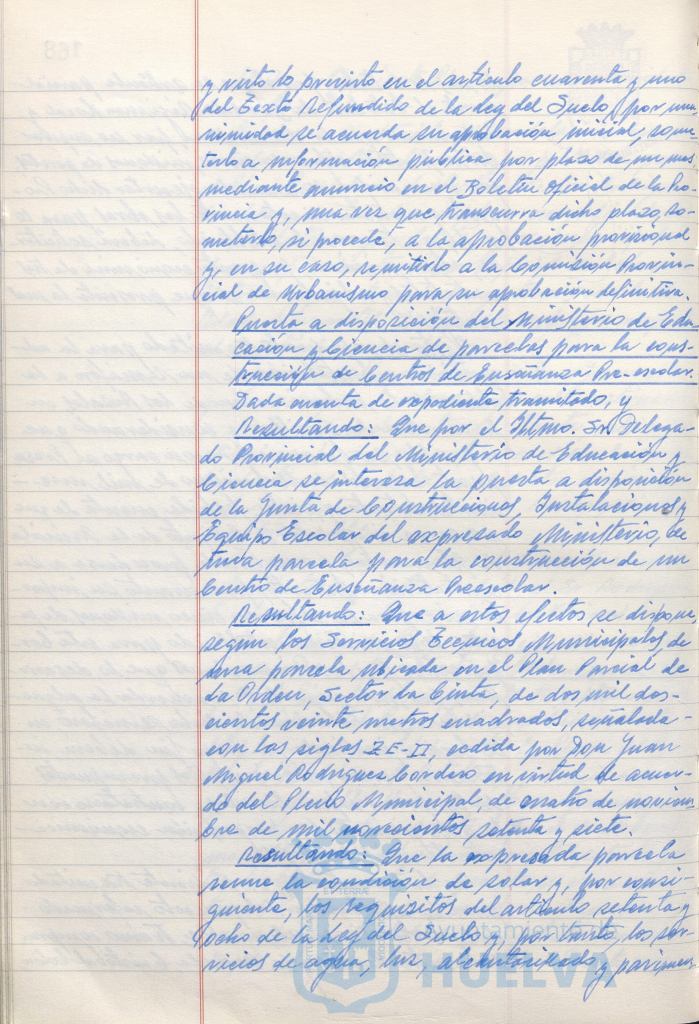 y visto lo previsto en el artículo cuarenta y uno
del Texto Refundido de la Ley del Suelo, por una
nimidad se acuerda su aprobación inicial, some
terlo a información pública por plazo de un mes
mediante anuncio en el Boletín Oficial de la Pro
vincia y, una vez que transcurra dicho plazo, so
meterlo, si procede, a la aprobación provisional
y, en su caso, remitirlo a la Comisión Provin-
cial de Urbanismo para su aprobación definitiva.
Puesta a disposición del Ministerio de Edu
cación y Ciencia de parcelas para la cons-
trucción de Centros de Enseñanza Pre-escolar.
Dada cuenta de expediente tramitado, y
Resultando: Que por el Iltmo. Sr. Delega-
do Provincial del Ministerio de Educación y
Ciencia se interesa la puesta a disposición
de la Junta de Construcciones, Instalaciones y
Equipo Escolar del expresado Ministerio, de
una parcela para la construcción de un
Centro de Enseñanza Preescolar.
Resultando: Que a estos efectos se dispone,
según los Servicios Técnicos Municipales, de
una parcela ubicada en el Plan Parcial de
La Orden, Sector La Cinta, de dos mil dos-
cientos veinte metros cuadrados, señalada
con las siglas ZE-II, cedida por Don Juan
Miguel Rodríguez Cordero en virtud de acuer-
do del Pleno Municipal, de cuatro de noviem
bre de mil novecientos setenta y siete.
Resultando: Que la expresada parcela
reune la condición de solar y, por consi-
guiente, los requisitos del artículo setenta y
ocho de la Ley del Suelo y, por tanto, los ser-
vicios de agua, luz, alcantarillado y pavimen
168
ayuntamiento de
HUELVA